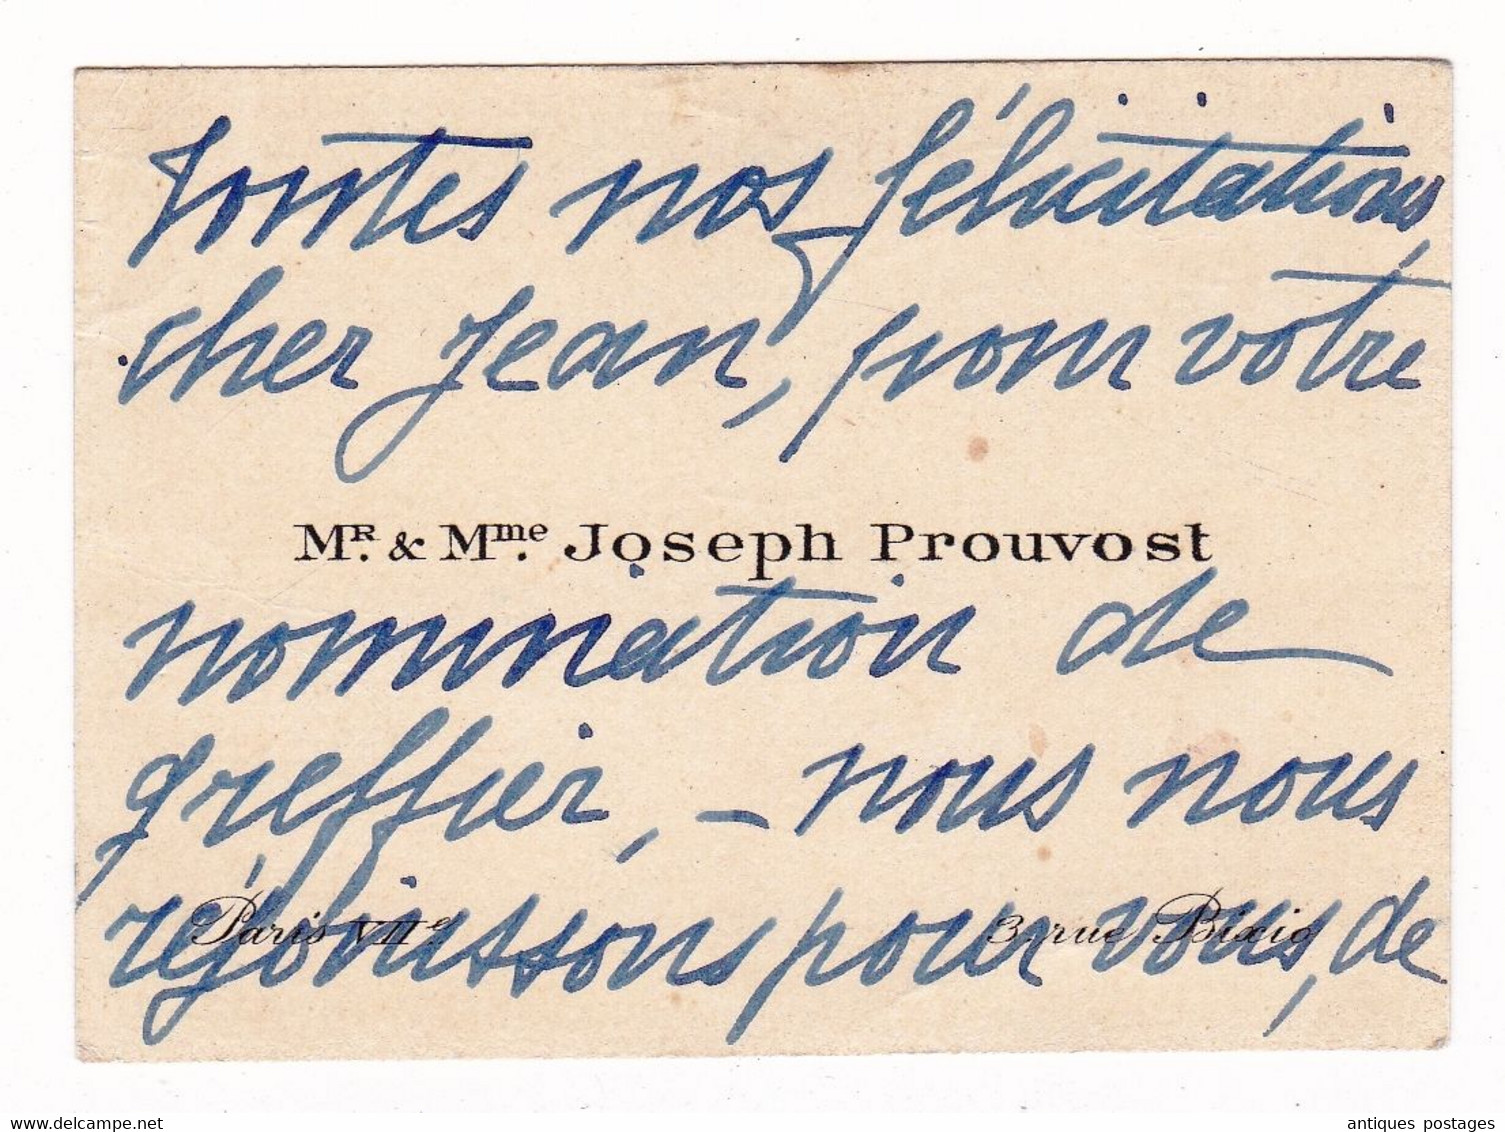 Toutes nos félicitations,
cher Jean, pour votre
Mʀ. & Mme. Joseph Prouvost
nomination de
greffier, — nous nous
réjouissons pour vous, de
Paris VIIe 3, rue Bixio
antiques postages
delcampe.net